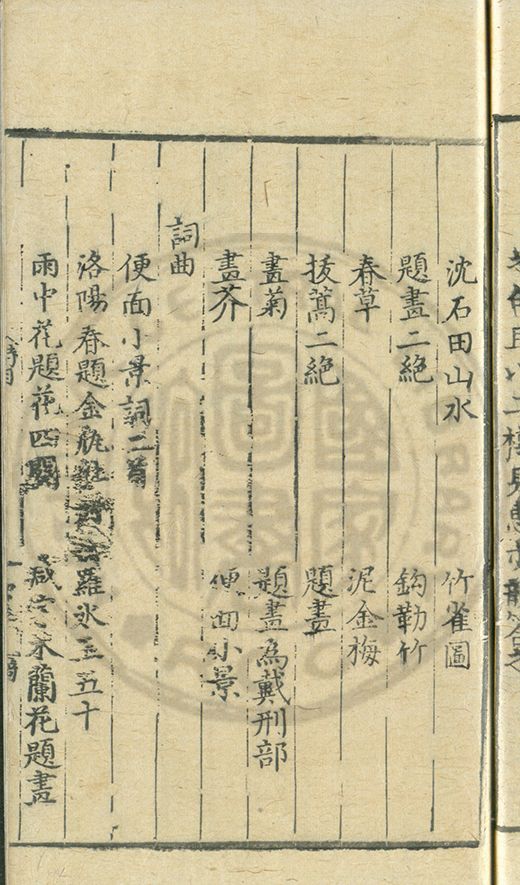 沈石田山水　竹雀圖
題畫二絕　鈎勒竹
春草　泥金梅
拔蒿二絕　題畫
畫菊　題畫為戴刑部
畫芥　便面小景
詞曲
便面小景詞二首
洛陽春題金 羅 五十
雨中花題花四闋　減字木蘭花題畫